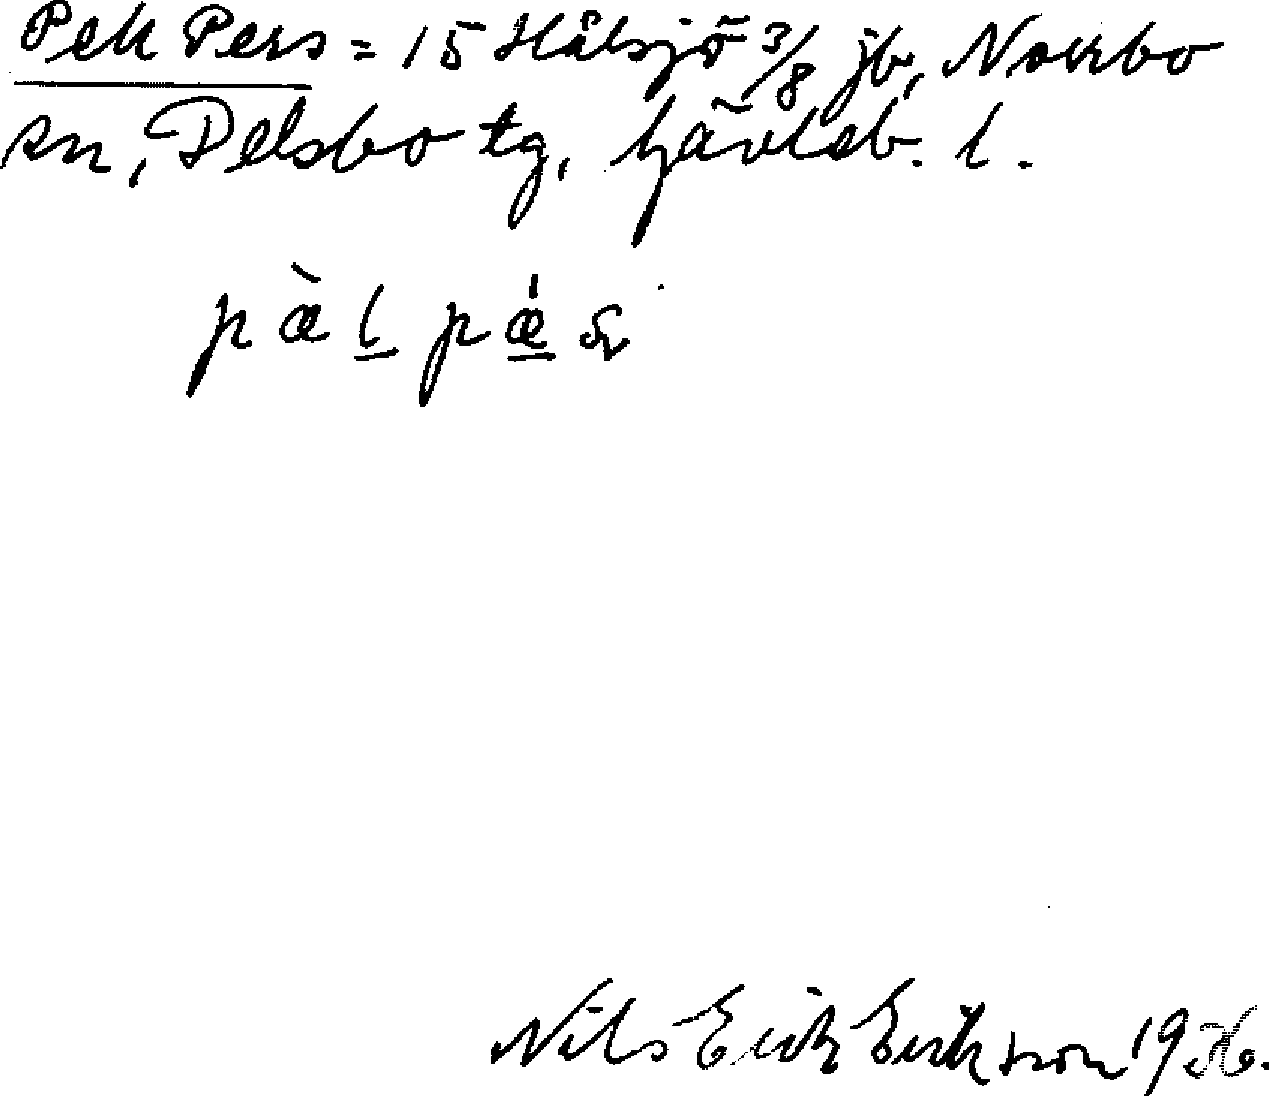 Pell Pers = 15 Hålsjö 3/8 jb, Norrbo
sn, Delsbo tg, Gävleb. l.
pæ̀l pǽs
Nils Erik Eriksson 1936.